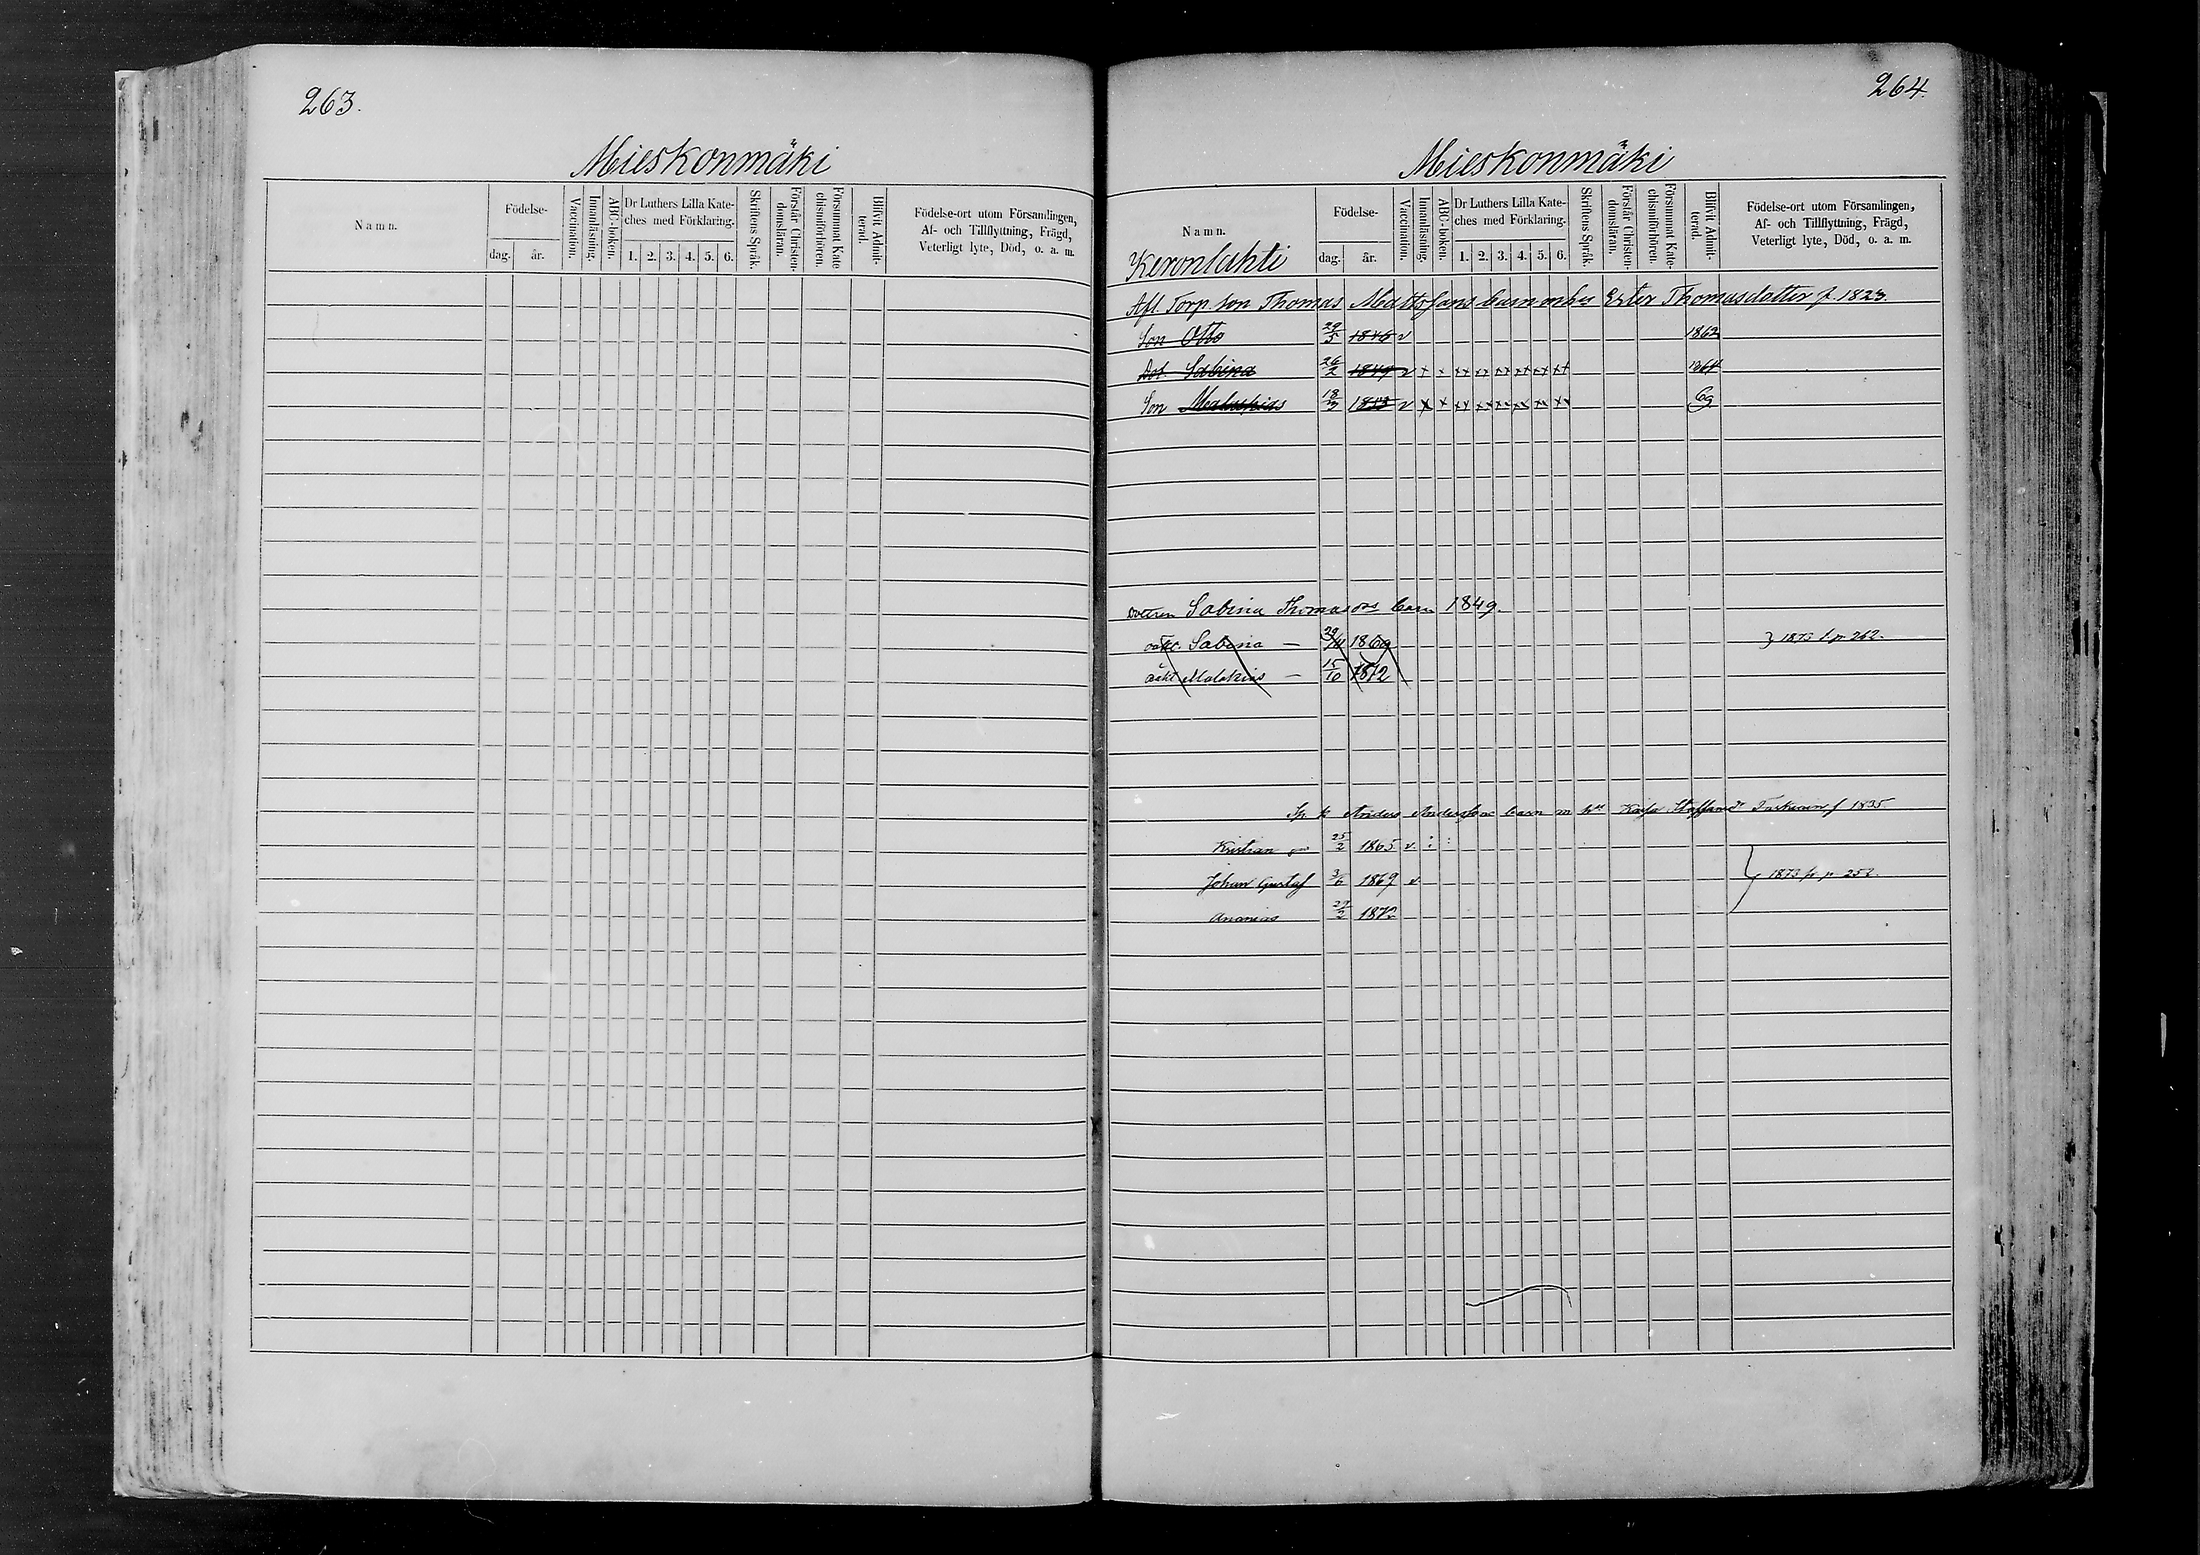 263.
Mieskonmäki
Namn.
Födelse-
dag.
år.
Vaccination.
Innanläsning.
ABC-boken.
Dr Luthers Lilla Kate-
ches med Förklaring.
1. 2. 3. 4. 5. 6.
Skriftens Språk.
Förstår Christen-
domsläran.
Försummat Kate-
chismiförhören.
Blifvit Admit-
terad.
Födelse-ort utom Församlingen,
Af- och Tillflyttning, Frägd,
Veterligt lyte, Död, o. a. m.
264.
Mieskonmäki
Namn.
Keronlahti
Födelse-
dag.
år.
Vaccination.
Innanläsning.
ABC-boken.
Dr Luthers Lilla Kate-
ches med Förklaring.
1. 2. 3. 4. 5. 6.
Skriftens Språk.
Förstår Christen-
domsläran.
Försummat Kate-
chismiförhören.
Blifvit Admit-
terad.
Födelse-ort utom Församlingen,
Af- och Tillflyttning, Frägd,
Veterligt lyte, Död, o. a. m.
Afl. Torp. son Thomas Mattssons barn m hu Ester Thomasdotter f. 1823.
Son Otto 29/5 1846 v 1862
Dot. Sabina 26/2 1849 v + + ++ ++ ++ ++ ++ ++ 1864
Son Malakias 18/3 1853 v x x xx xx xx xx xx xx 69
Dottren Sabina Thomasdrs barn 1849.
oäkt. Sabina — 29/11 1869 } 1873 f. p 262.
oäkt Malakias — 15/10 1872
Anders Anderssons barn m hu Kaisa Staffansdr f 1835
Kristian 25/2 1865 v
Johan Gustaf 3/6 1869 v } 1873 fr p 252.
Ananias 29/2 1872